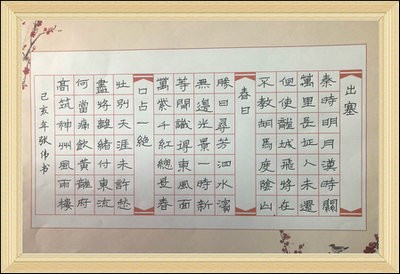 出塞
秦時明月漢時關
萬里長征人未還
但使龍城飛將在
不教胡馬度陰山
春日
勝日尋芳泗水濱
無邊光景一時新
等閒識得東風面
萬紫千紅總是春
口占一絕
壯別天涯未許愁
盡將離緒付東流
何當痛飲黃龍府
高筑神州風雨樓
己亥年张伟书